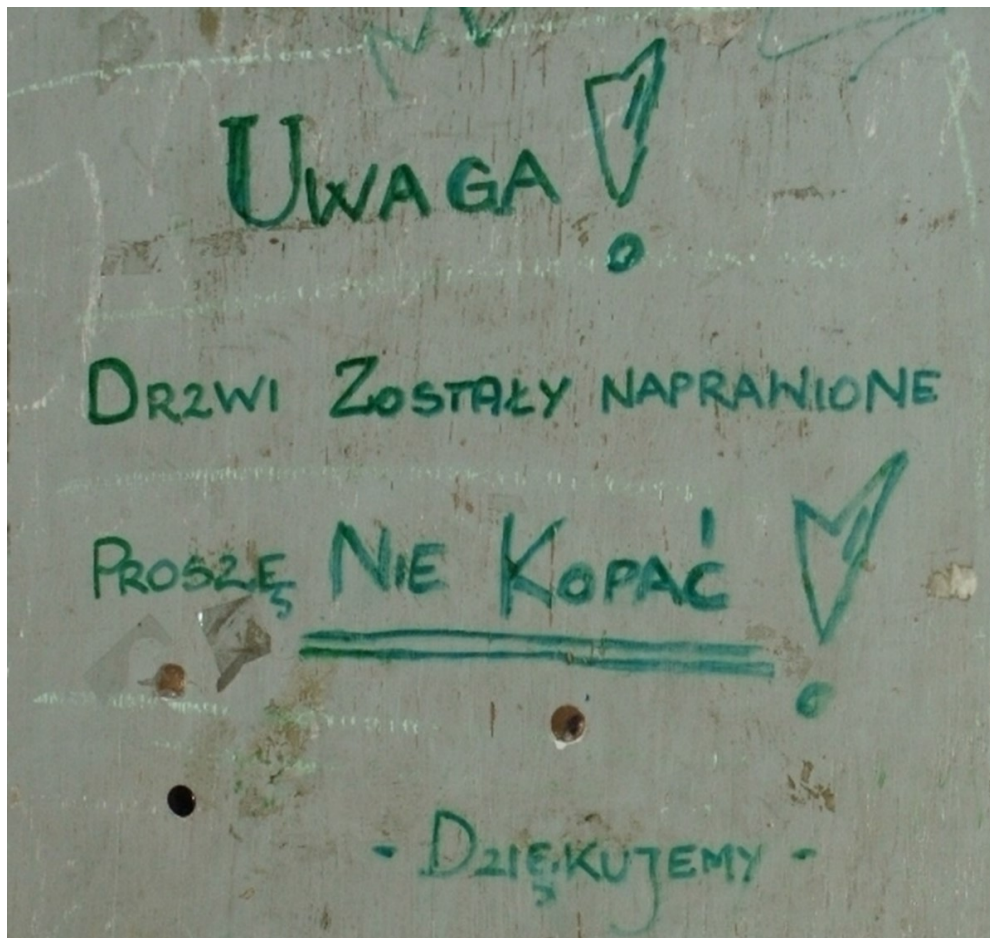 UWAGA!
DRZWI ZOSTAŁY NAPRAWIONE
PROSZĘ NIE KOPAĆ!
- DZIĘKUJEMY -